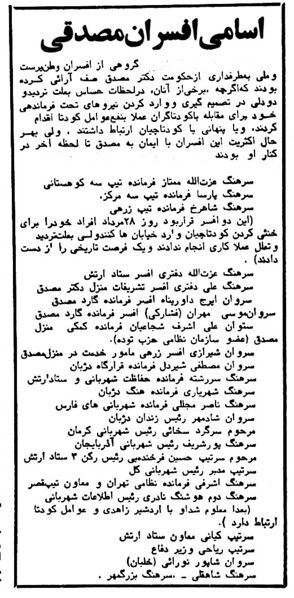 اسامی افسران مصدقی
گروهی از افسران وطن‌پرست
وملی بطرفداری ازحکومت دکتر مصدق صف آرائی کرده
بودند که‌اگرچه ،برخی‌از آنان، درلحظات حساس بعلت تردیدو
دودلی در تصمیم گیری و وارد کردن نیروهای تحت فرماندهی
خود برای مقابله باکودتاگران عملا بنفع‌عوامل کودتا اقدام
کردند، ویا پنهانی با کودتاچیان ارتباط داشتند ، ولی بهر
حال اکثریت این افسران با ایمان به مصدق تا لحظه آخر در
کنار او بودند
سرهنگ عزت‌الله ممتاز فرمانده تیپ سه کوهستانی
سرهنگ پارسا فرمانده تیپ سه مرکز.
سرهنگ شاهرخ فرمانده تیپ زرهی
(این دوافسر قراربود روز ۲۸مرداد افراد خودرا برای
خنثی کردن کودتاچیان وارد خیابان ها کنندولی بعلت‌تردید
وتعلل عملا کاری انجام ندادند و یک فرصت تاریخی را از دست
دادند) .
سرهنگ عزت‌الله دفتری افسر ستاد ارتش
سرهنگ علی دفتری افسر تشریفات منزل دکتر مصدق
سروان ایرج داورپناه افسر فرمانده گارد مصدق
سروان‌موسی مهران (فشارکی) افسر فرمانده گارد مصدق
ستوان علی اشرف شجاعیان فرمانده کمکی منزل
مصدق (عضو سازمان نظامی حزب توده).
سروان شیرازی افسر زرهی مامور خدمت در منزل‌مصدق
سروان مصطفی شیردل فرمانده قرارگاه دژبان
سرهنگ سررشته فرمانده حفاظت شهربانی و ستادارتش
سرهنگ شهریاری فرمانده هنگ دژبان
سرهنگ ناصر مجللی فرمانده شهربانی های فارس
سروان شادمهر رئیس زندان دژبان
مرحوم سرگرد سخائی رئیس شهربانی کرمان
سرهنگ پورشریف رئیس شهربانی آذربایجان
مرحوم سرتیپ حسین فرخنده‌پی رئیس رکن ۳ ستاد ارتش
سرتیپ مدبر رئیس شهربانی کل
سرهنگ اشرفی فرمانده نظامی تهران و معاون تیپ‌قصر
سرهنگ دوم هوشنگ نادری رئیس اطلاعات شهربانی
(بعدا معلوم شداو با اردشیر زاهدی و عوامل کودتا
ارتباط دارد ).
سرتیپ کیانی معاون ستاد ارتش
سرتیپ ریاحی وزیر دفاع
سروان شاپور نورائی (خلبان)
سرهنگ شاهقلی ـ .سرهنگ بزرگمهر .